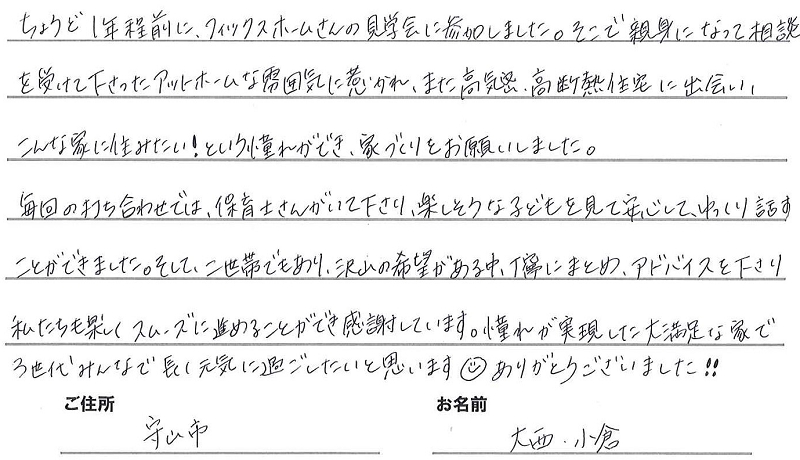 ちょうど1年程前に、フィックスホームさんの見学会に参加しました。そこで親身になって相談
を受けて下さったアットホームな雰囲気に惹かれ、また高気密、高断熱住宅に出会い、
こんな家に住みたい!という憧れができ、家づくりをお願いしました。
毎回の打ち合わせでは、保育士さんがいて下さり、楽しそうな子どもを見て安心して、ゆっくり話す
ことができました。そして、二世帯でもあり、沢山の希望がある中、丁寧にまとめ、アドバイスを下さり
私たちも楽しくスムーズに進めることができ感謝しています。憧れが実現した大満足な家で
3世代みんなで長く元気に過ごしたいと思います☺ありがとうございました!!
ご住所 お名前
守山市 大西・小倉